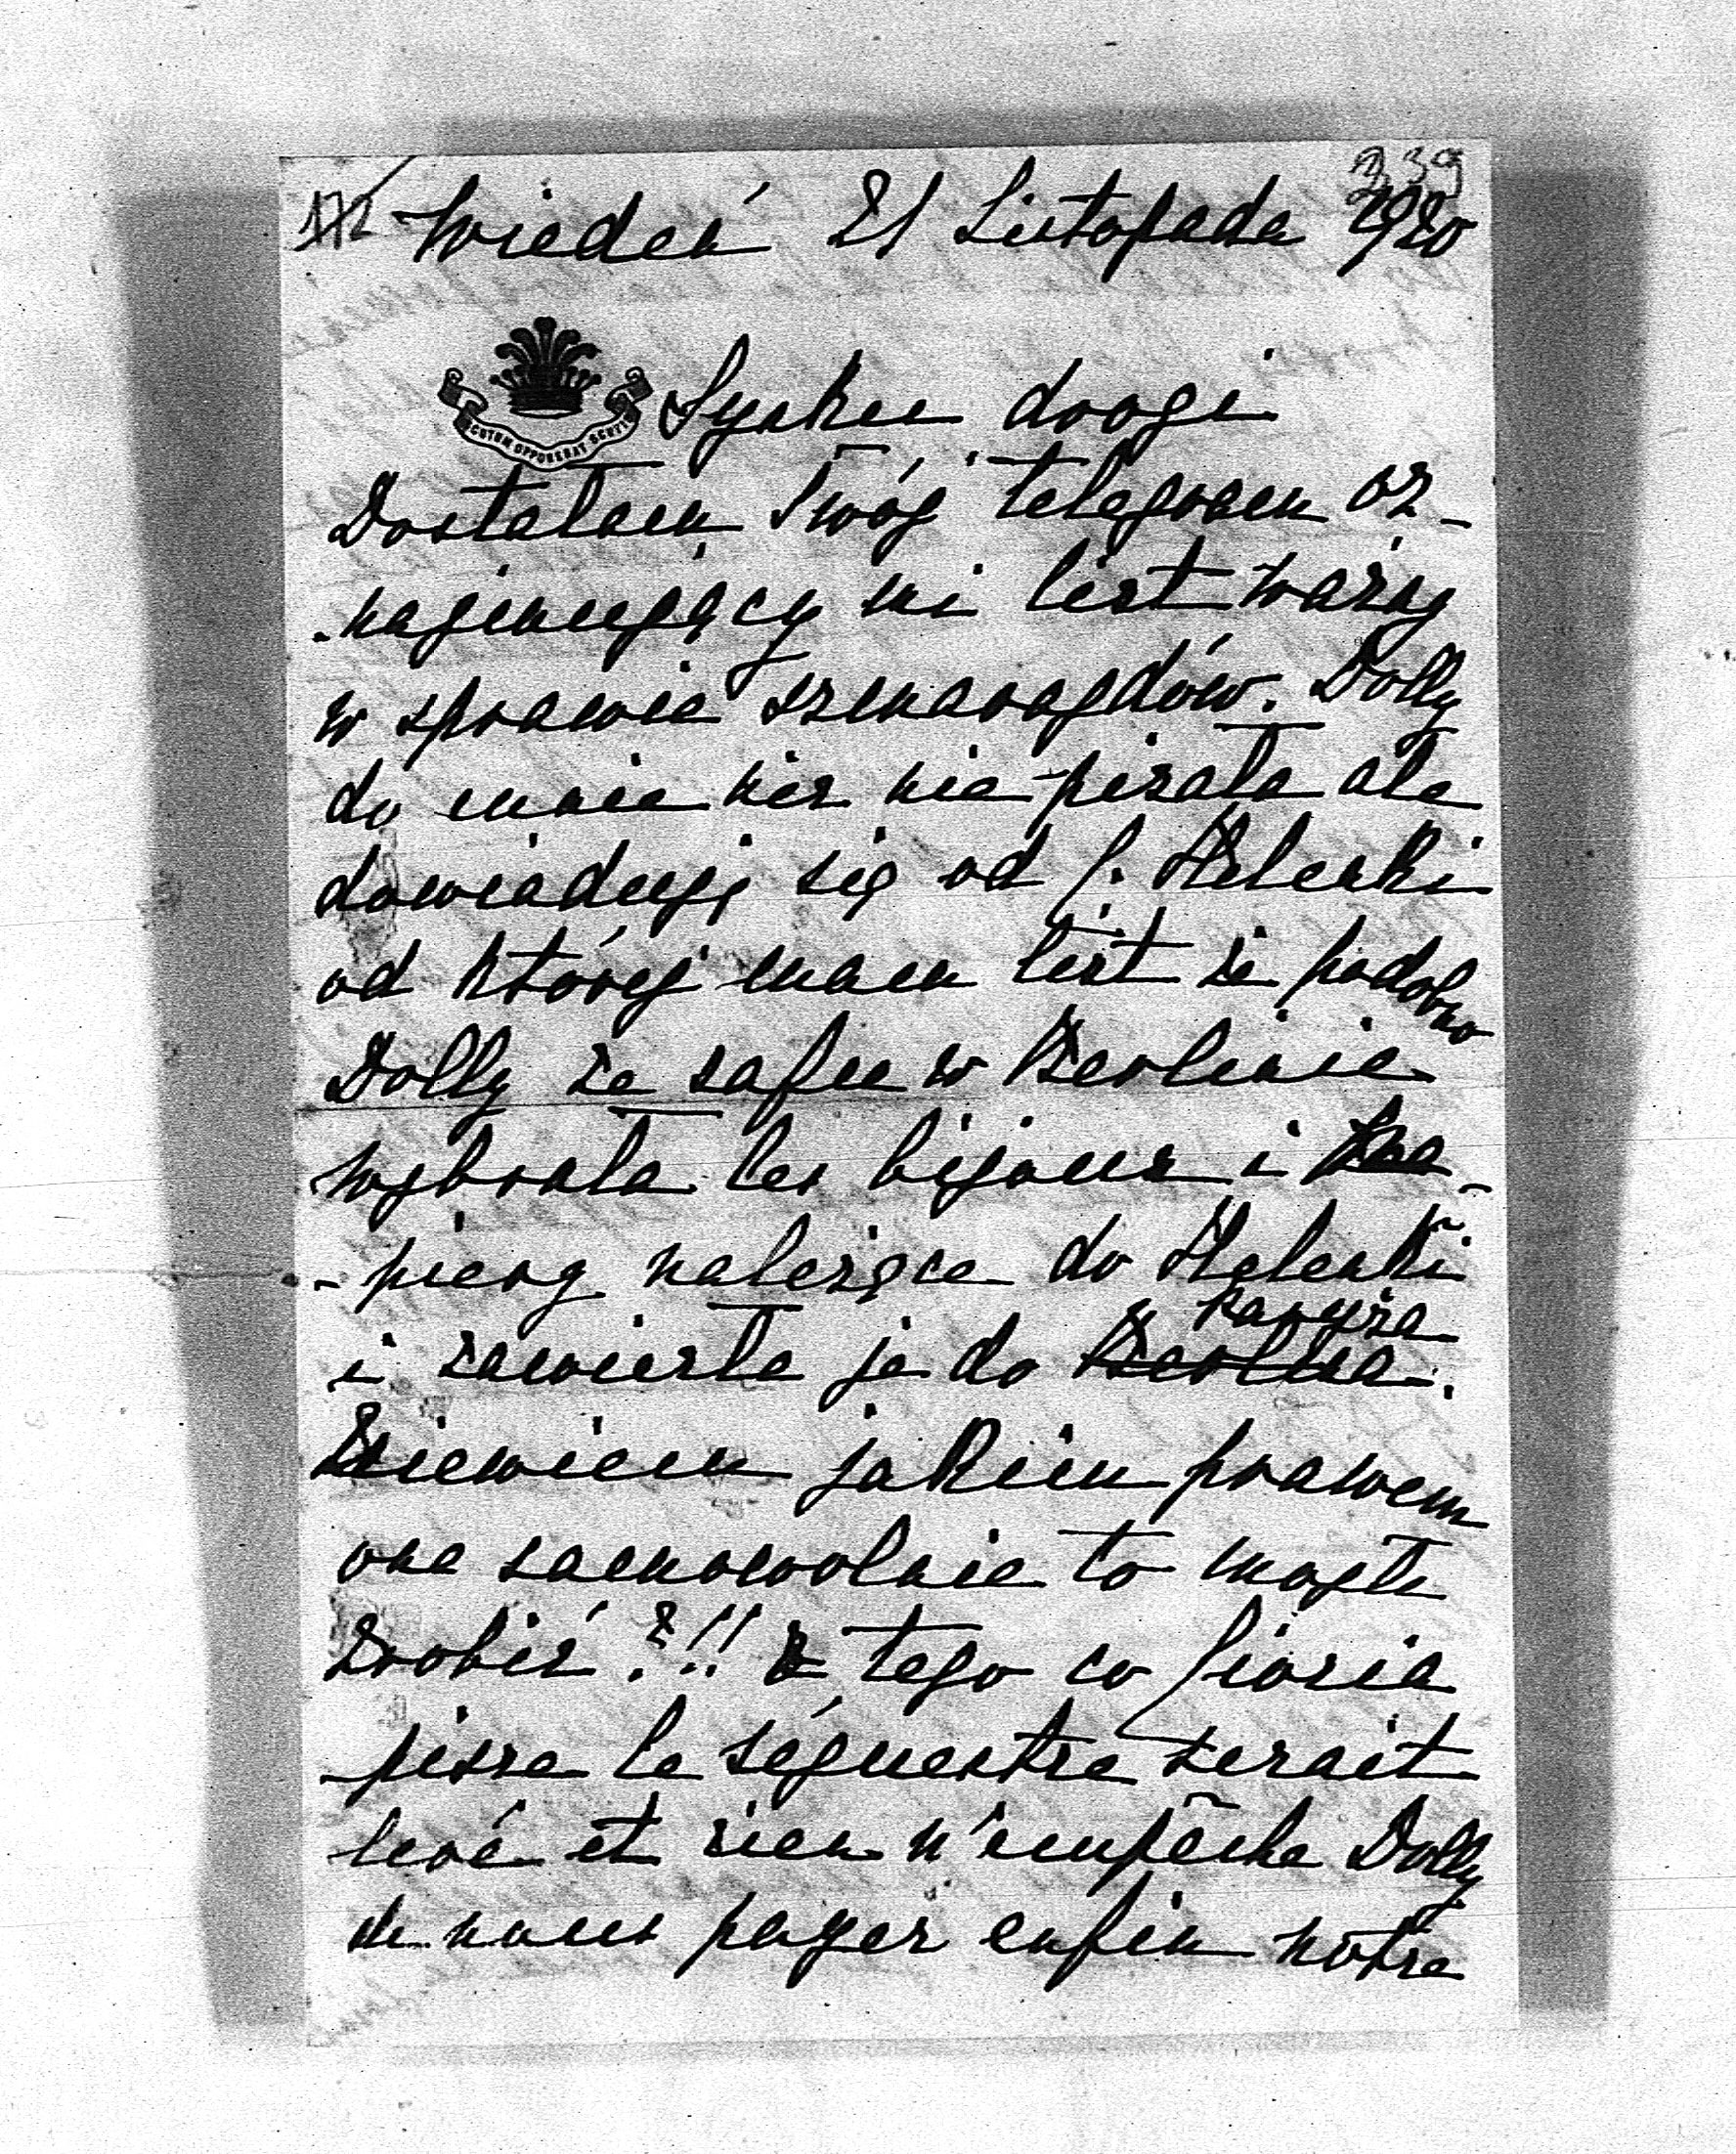 172
339
Wiedeń 21 Listopada 1920
SCUTUM OPPONEBAT SCUTIS
Synku drogi
Dostałam Twój telegram oz-
-najmujący mi list ważny
w sprawie szmaragdów. Dolly
do mnie nic nie pisała ale
dowiaduję się od c. Helenki
od której mam list że podobno
Dolly ze safu w Berlinie
wybrała les bijoux i pa-
-piery należące do Helenki
i zawiezła je do Berlina. Paryża
Niewiem jakiem prawem
one samowolnie to mogły
zrobić ?!! Z tego co ciocia
pisze le séquestre serait
levé et rien n'empêche Dolly
de nous payer enfin notre